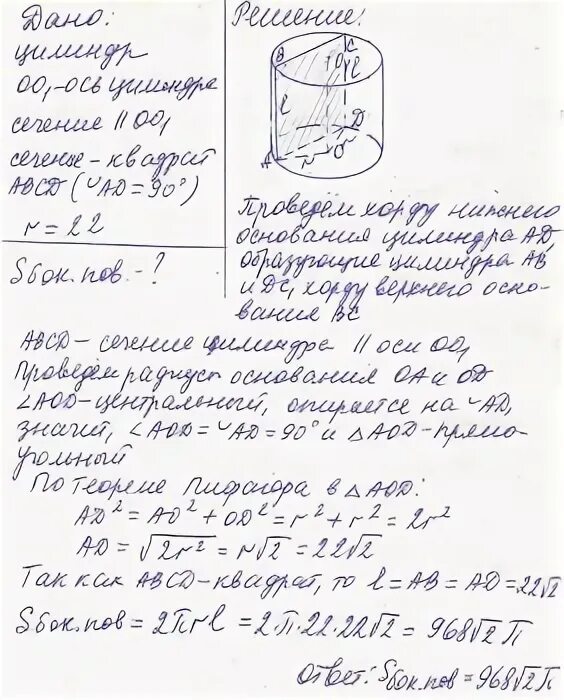 Дано:
цилиндр
OO₁-ось цилиндра
сечение || OO₁
сечение - квадрат
ABCD (◡AD = 90°)
r = 22
Sбок.пов. - ?
Решение:
B
C
O₁
l
l
A
D
r
O
r
Проведём хорду нижнего
основания цилиндра AD,
образующие цилиндра AB
и DC, хорду верхнего осно-
вания BC
ABCD - сечение цилиндра || оси OO₁
Проведём радиусы основания OA и OD
∠AOD-центральный, опирается на ◡AD,
значит, ∠AOD = ◡AD = 90° и △AOD-прямо-
угольный
По теореме Пифагора в △AOD:
AD² = AO² + OD² = r² + r² = 2r²
AD = √2r² = r√2 = 22√2
Так как ABCD-квадрат, то l = AB = AD = 22√2
Sбок.пов = 2πrl = 2·π·22·22√2 = 968√2 π
Ответ: Sбок.пов = 968√2π